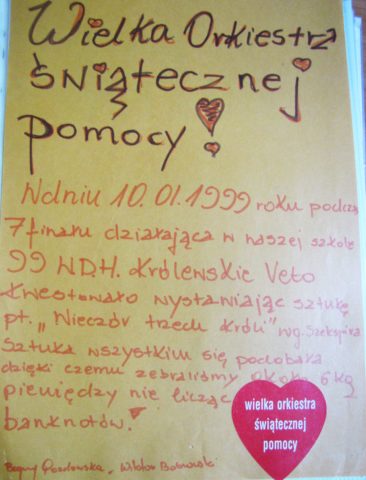 Wielka Orkiestra
Świątecznej
pomocy!
W dniu 10.01.1999 roku podczas
7 finału działająca w naszej szkole
99 WDH. Królewskie Veto
kwestowało wystawiając sztukę
pt. „Wieczór trzech króli" wg. Szekspira
Sztuka wszystkim się podobała
dzięki czemu zebraliśmy około 6 kg
pieniędzy nie licząc
banknotów!
wielka orkiestra
świątecznej
pomocy